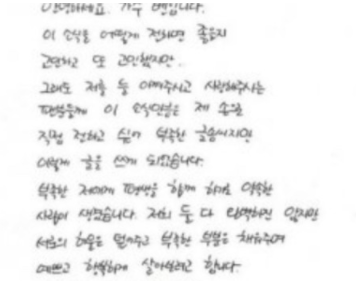 안녕하세요. 가수 벤입니다.
이 소식을 어떻게 전하면 좋을지
고민하고 또 고민했지만..
그래도 저를 늘 아껴주시고 사랑해주시는
팬분들께 이 소식만큼은 제 손으로
직접 전하고 싶어 부족한 글솜씨지만
이렇게 글을 쓰게 되었습니다.
부족한 저에게 평생을 함께 하기로 약속한
사람이 생겼습니다. 저희 둘 다 완벽하진 않지만
서로의 허물은 덮어주고 부족한 부분은 채워주며
예쁘고 행복하게 살아보려고 합니다.